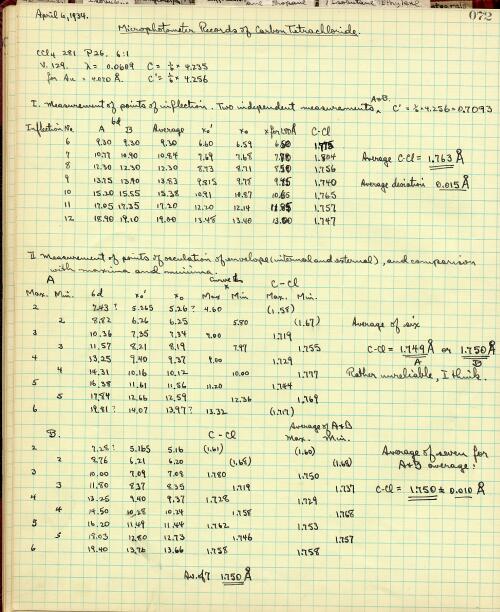 072
April 6, 1934.
Microphotometer Records of Carbon Tetrachloride.
CCl4 281 P26. 6:1
V. 129. λ = 0.0609 C = ⅙ × 4.235
for Au = 4.070 Å. C' = ⅙ × 4.256
I. Measurement of points of inflection. Two independent measurements, A+B. C' = ⅙ × 4.256 = 0.7093
6d
Inflection No. A B Average x0' x0 x for 1.00Å C-Cl
6 9.30 9.30 9.30 6.60 6.59 1.775
7 10.77 10.90 10.84 7.69 7.68 1.804
8 12.30 12.30 12.30 8.73 8.71 1.756
9 13.75 13.90 13.83 9.815 9.78 1.740
10 15.20 15.55 15.38 10.91 10.87 1.765
11 17.05 17.35 17.20 12.20 12.14 11.85 1.757
12 18.90 19.10 19.00 13.48 13.40 1.747
Average C-Cl = 1.763 Å
Average deviation 0.015 Å
II Measurement of points of osculation of envelope (internal and external), and comparison
with maxima and minima.
A Curve the x C-Cl
Max. Min. 6d x0' x0 Max Min Max. Min.
2 7.43 ? 5.265 5.26 ? 4.60 (1.58)
2 8.82 6.26 6.25 5.80 (1.67)
3 10.36 7.35 7.34 7.00 1.719
3 11.57 8.21 8.19 7.97 1.755
4 13.25 9.40 9.37 9.00 1.729
4 14.31 10.16 10.12 10.00 1.777
5 16.38 11.61 11.56 11.20 1.744
5 17.84 12.66 12.59 12.36 1.769
6 19.81 ? 14.07 13.97 ? 13.32 (1.717)
Average of six
C-Cl = 1.749 Å or 1.750 Å
A B
Rather unreliable, I think.
B. C-Cl Average of A+B
Max. Min.
2 7.28 ? 5.165 5.16 (1.61) (1.60)
2 8.76 6.21 6.20 (1.68) (1.68)
3 10.00 7.09 7.08 1.780 1.750
3 11.80 8.37 8.35 1.719 1.737
4 13.25 9.40 9.37 1.728 1.729
4 14.50 10.28 10.24 1.758 1.768
5 16.20 11.49 11.44 1.762 1.753
5 18.03 12.80 12.73 1.746 1.757
6 19.40 13.76 13.66 1.758 1.758
Average of seven for
A+B average:
C-Cl = 1.750 ± 0.010 Å
Av. of 7 1.750 Å